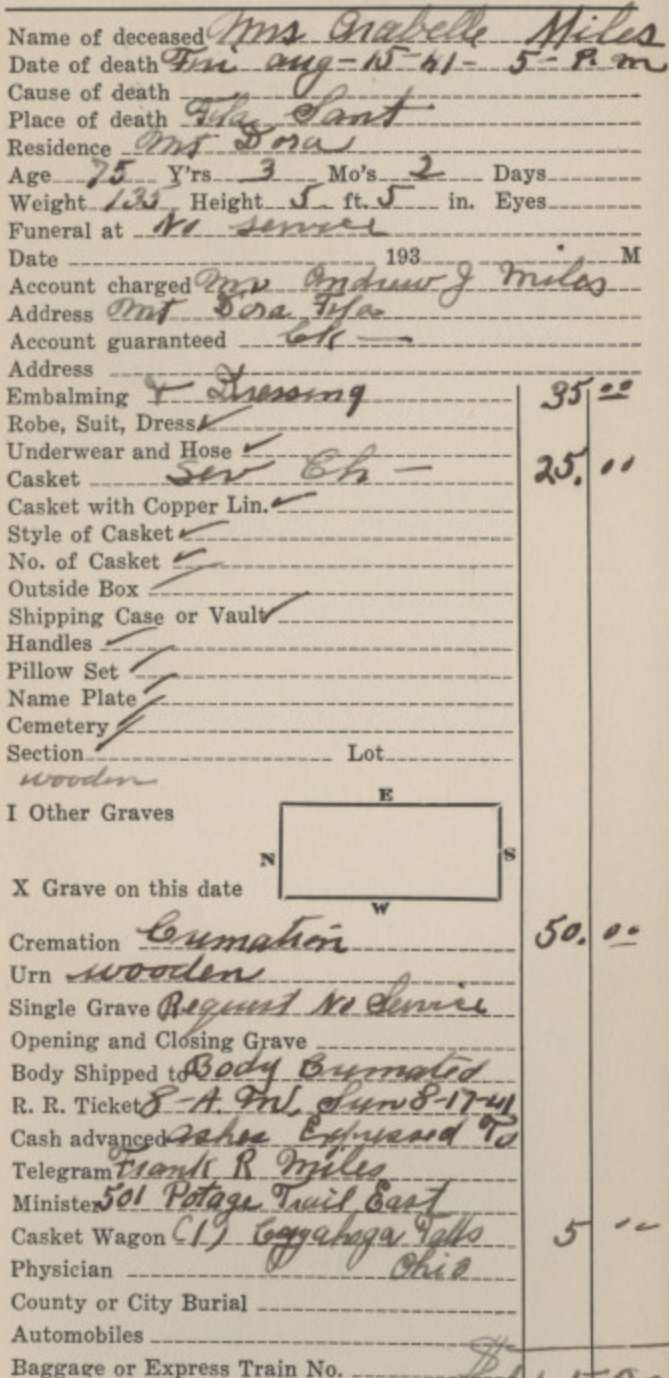 Name of deceased Mrs Arabelle Miles
Date of death Fri Aug-15-41- 5- P. m
Cause of death
Place of death Fla. Sant
Residence Mt Dora
Age 75 Y'rs 3 Mo's 2 Days
Weight 135 Height 5 ft. 5 in. Eyes
Funeral at No Service
Date 193 M
Account charged Mr Andrew J Miles
Address Mt Dora Fla
Account guaranteed Ok —
Address
Embalming & Dressing 35 00
Robe, Suit, Dress ✓
Underwear and Hose ✓
Casket Ser Ch — 25. 00
Casket with Copper Lin. ✓
Style of Casket ✓
No. of Casket ✓
Outside Box
Shipping Case or Vault ✓
Handles ✓
Pillow Set ✓
Name Plate ✓
Cemetery ✓
Section Lot
wooden
E
I Other Graves
N S
X Grave on this date
W
Cremation Cremation 50. 00
Urn wooden
Single Grave Request No Service
Opening and Closing Grave
Body Shipped to Body Cremated
R. R. Ticket 8-A. M. Sun 8-17-41
Cash advanced ashes Expressed To
Telegram Frank R Miles
Minister 501 Potage Trail East
Casket Wagon (1) Cuyahoga Falls 5 00
Physician Ohio
County or City Burial
Automobiles
Baggage or Express Train No. $